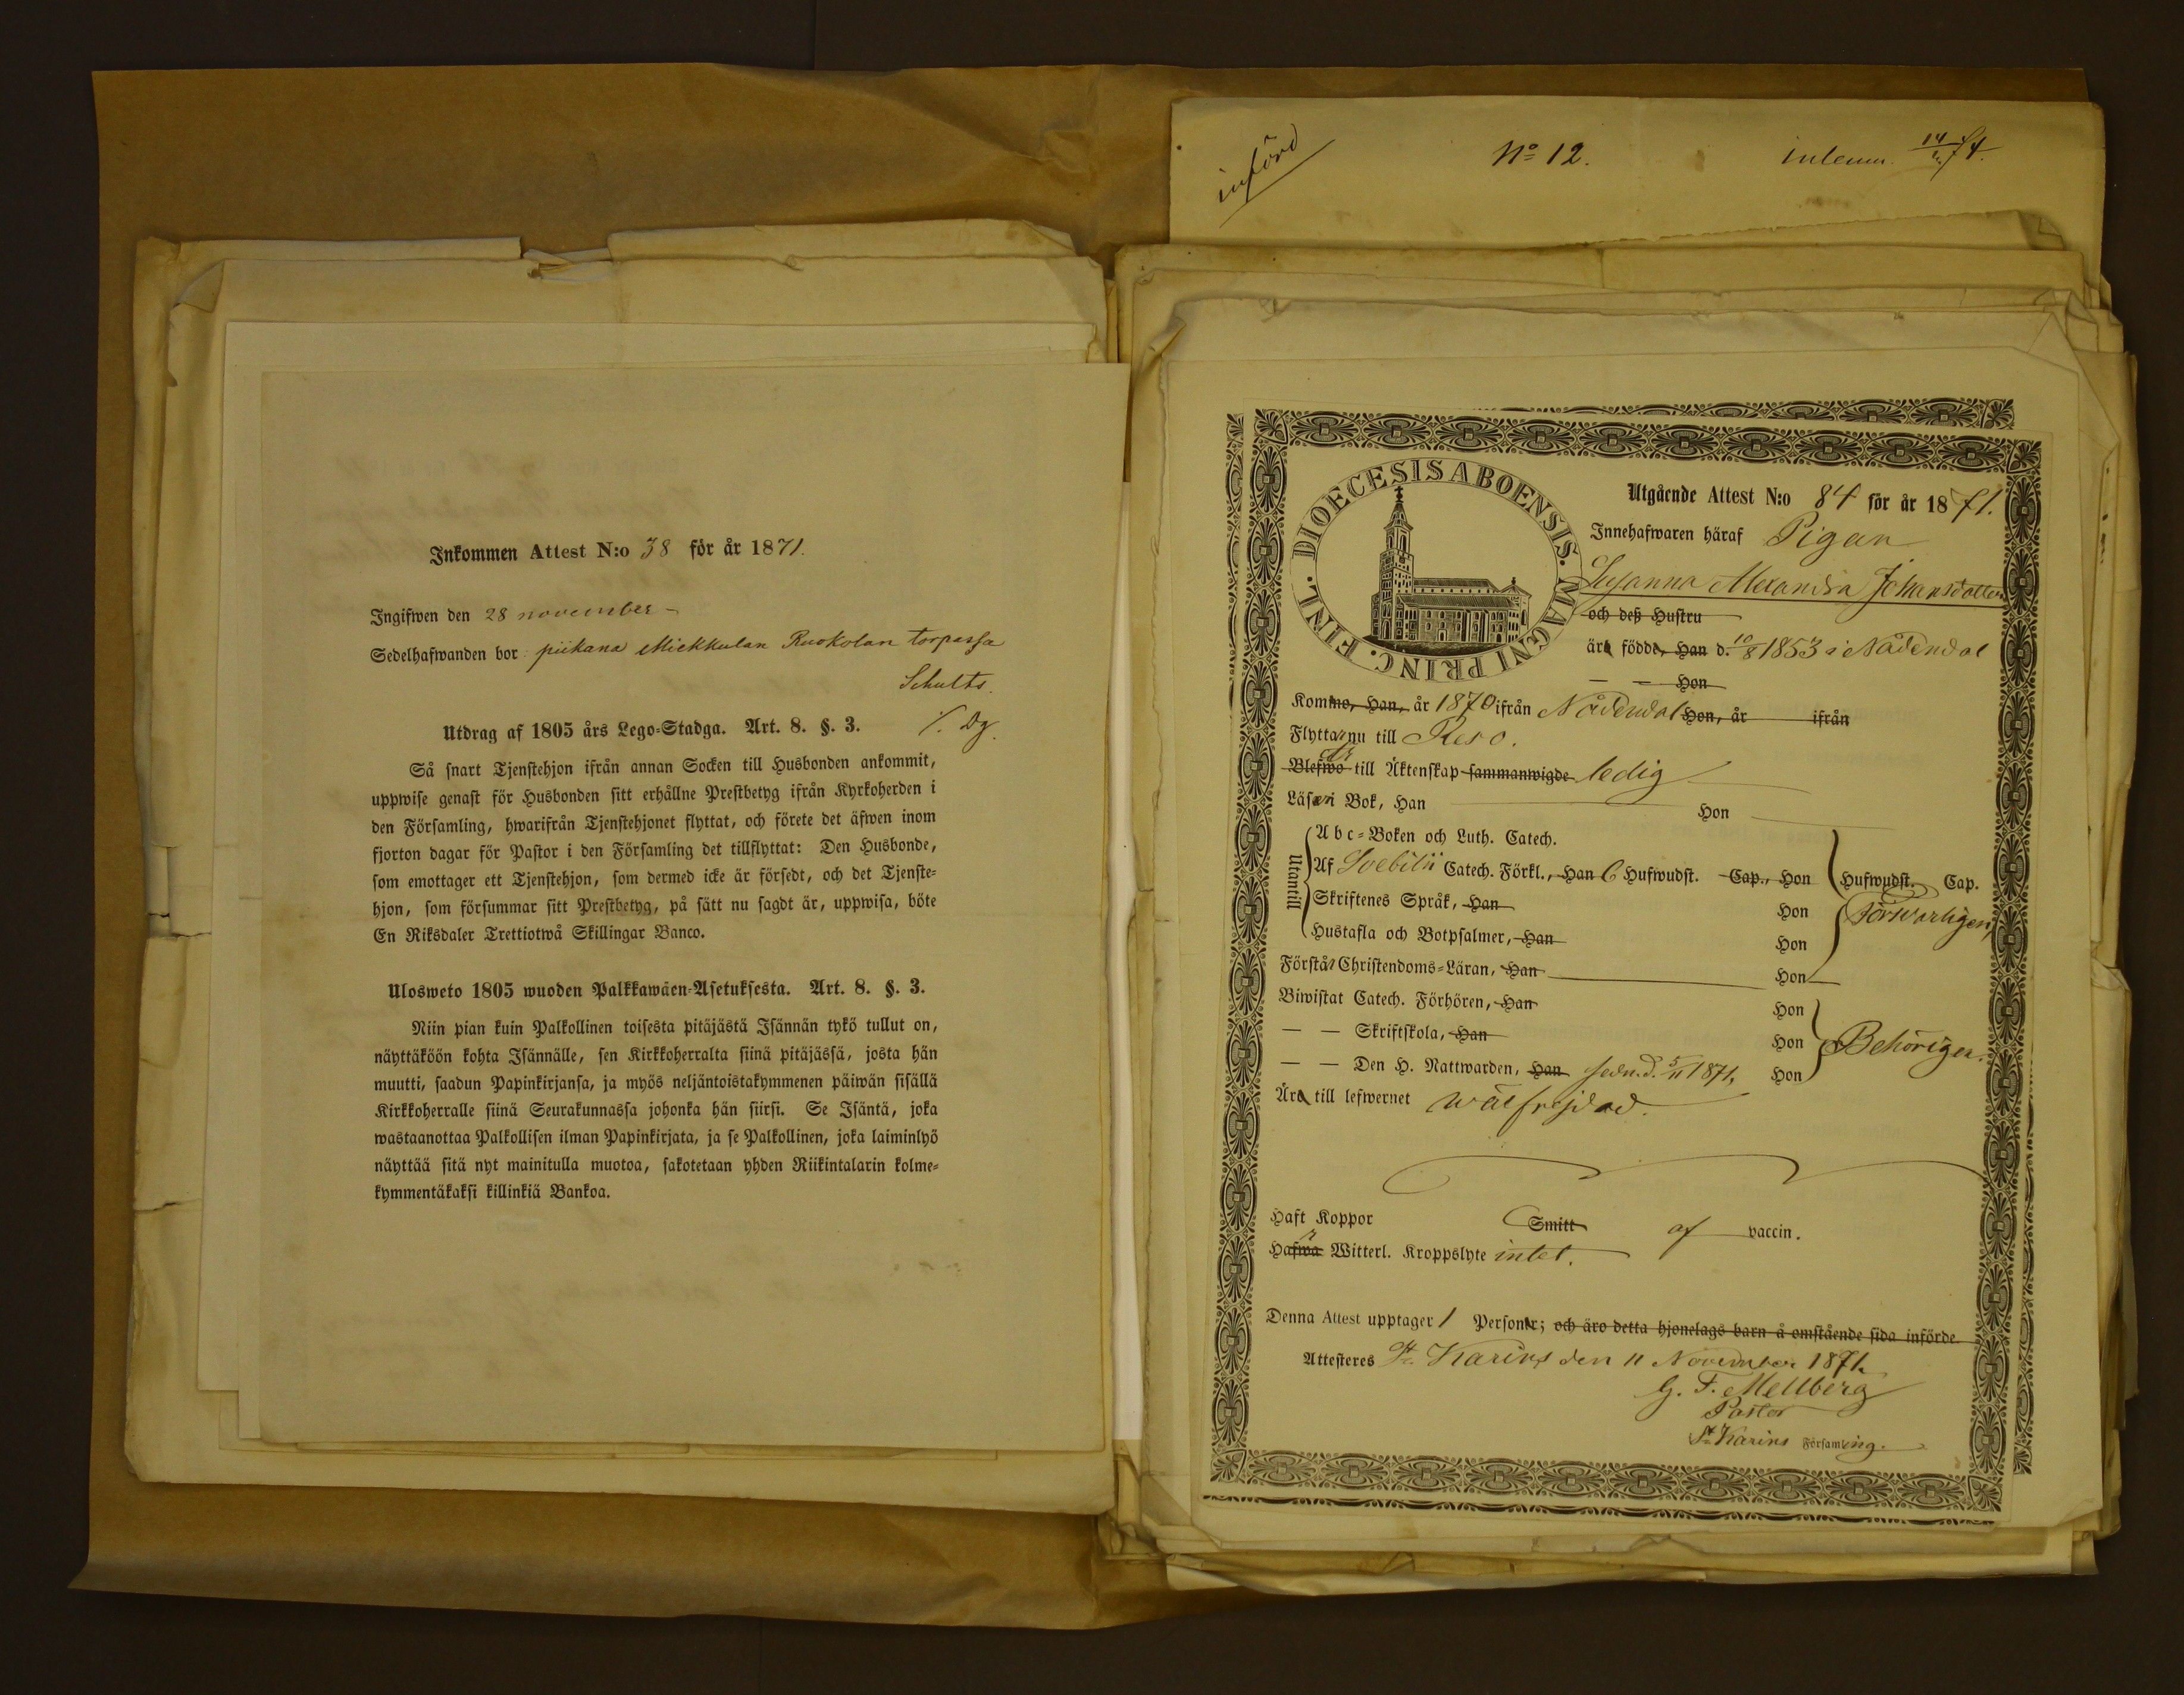 Inkommen Attest N:o 38 för år 1871.
Ingifwen den 28 november –
Sedelhafwanden bor piikana Miekkulan Ruokolan torpassa
Schults.
Dg.
Utdrag af 1805 års Lego-Stadga. Art. 8. §. 3.
Så snart Tjenstehjon ifrån annan Socken till Husbonden ankommit,
uppwise genast för Husbonden sitt erhållne Prestbetyg ifrån Kyrkoherden i
den Församling, hwarifrån Tjenstehjonet flyttat, och förete det äfwen inom
fjorton dagar för Pastor i den Församling det tillflyttat: Den Husbonde,
som emottager ett Tjenstehjon, som dermed icke är försedt, och det Tjenste-
hjon, som försummar sitt Prestbetyg, på sätt nu sagdt är, uppwisa, böte
En Riksdaler Trettiotwå Skillingar Banco.
Ulosweto 1805 wuoden Palkkawäen-Asetuksesta. Art. 8. §. 3.
Niin pian kuin Palkollinen toisesta pitäjästä Isännän tykö tullut on,
näyttäköön kohta Isännälle, sen Kirkkoherralta siinä pitäjässä, josta hän
muutti, saadun Papinkirjansa, ja myös neljäntoistakymmenen päiwän sisällä
Kirkkoherralle siinä Seurakunnassa johonka hän siirsi. Se Isäntä, joka
wastaanottaa Palkollisen ilman Papinkirjata, ja se Palkollinen, joka laiminlyö
näyttää sitä nyt mainitulla muotoa, sakotetaan yhden Riikintalarin kolme-
kymmentäkaksi killinkiä Bankoa.
införd
No 12.
DIOECESIS ABOENSIS. MAGNI PRINC. FINL.
Utgående Attest N:o 84 för år 1871.
Innehafwaren häraf Pigan
Susanna Alexandra Johansdotter
och deß Hustru
äro födde, Han d. 10/8 1853 i Nådendal
— — Hon
Kommo, Han, år 1870 ifrån Nådendal Hon, år ifrån
Flyttar nu till Reso.
Blefwo till Äktenskap sammanwigde ledig
Läser i Bok, Han Hon
Utantill
Abc-Boken och Luth. Catech.
Af Svebilii Catech. Förkl., Han 6 Hufwudst. Cap., Hon Hufwudst. Cap.
Skriftenes Språk, Han Hon Förswarligen
Hustafla och Botpsalmer, Han Hon
Förstår Christendoms-Läran, Han Hon
Biwistat Catech. Förhören, Han Hon
— — Skriftskola, Han Hon Behörigen.
— — Den H. Nattwarden, Han sedn. d. 5/11 1871. Hon
Äro till lefwernet wälfrejdad.
Haft Koppor Smitt af vaccin.
Hafwa Witterl. Kroppslyte intet.
Denna Attest upptager 1 Person; och äro detta hjonelags barn å omstående sida införde.
Attesteres St Karins den 11 November 1871.
G. F. Mellberg
Pastor
St Karins Församling.